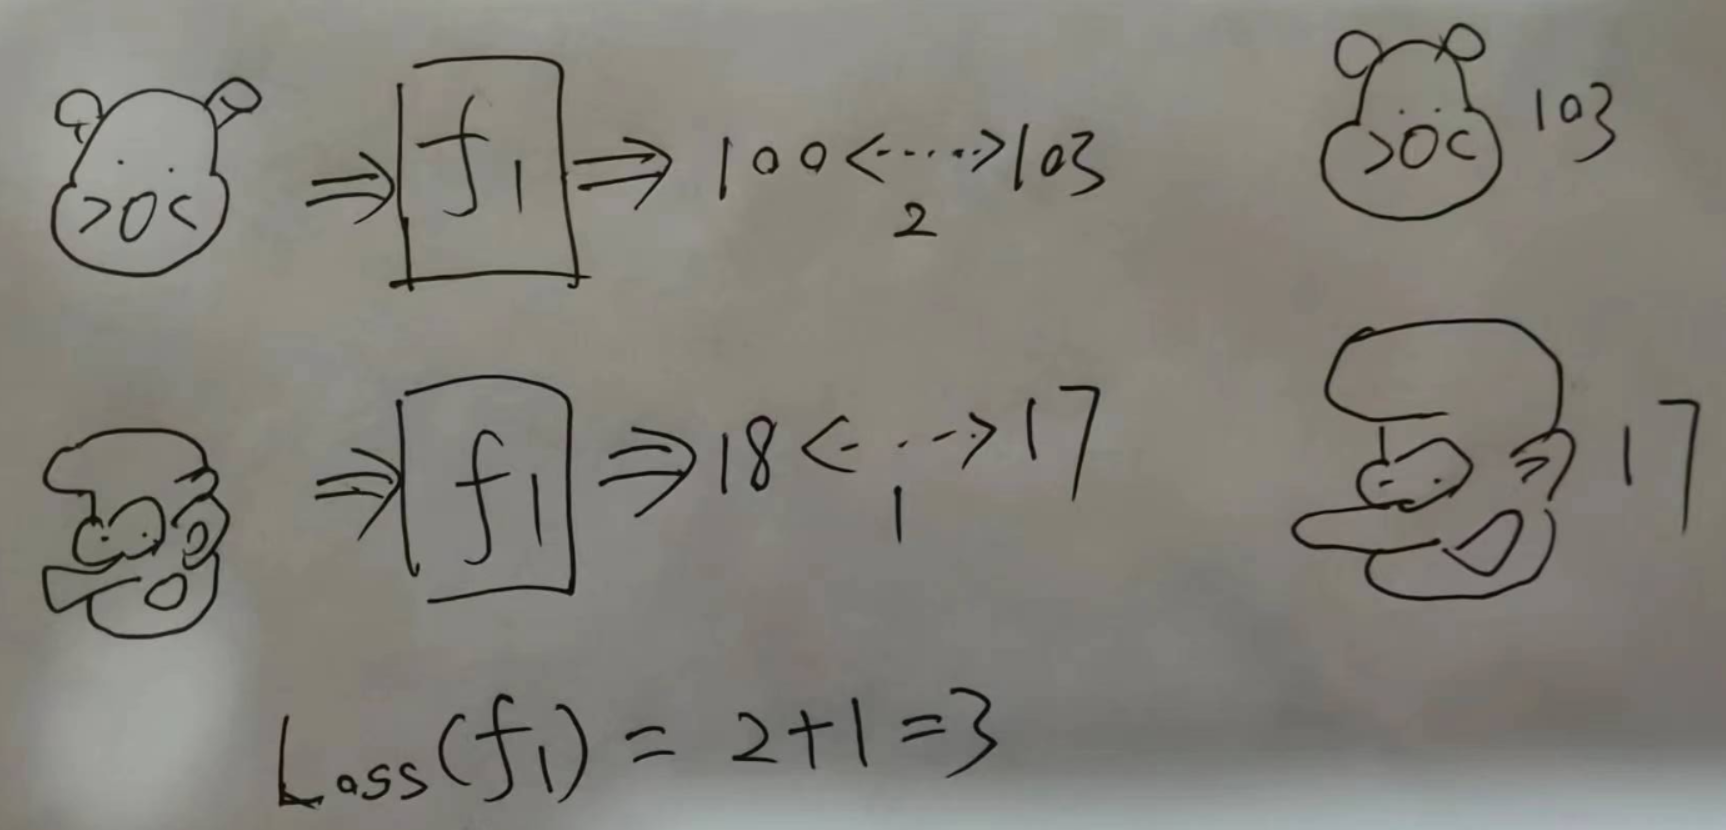 ⇒ f₁ ⇒ 100 <····> 103
2
103
⇒ f₁ ⇒ 18 <····> 17
1
17
Loss(f₁) = 2+1=3